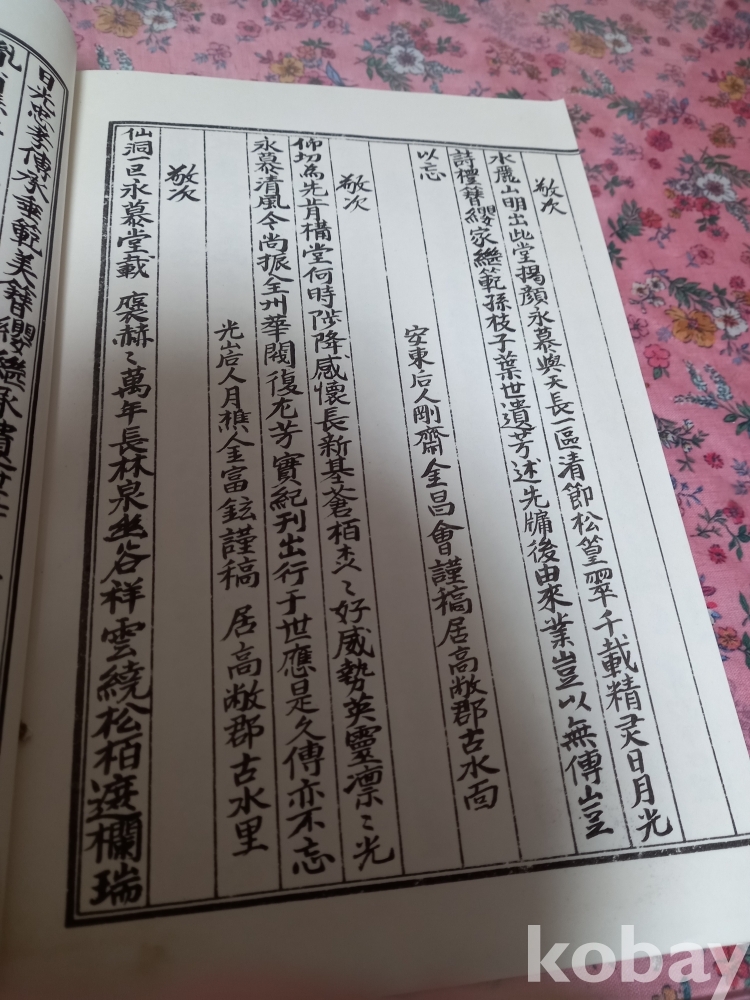 敬次
水麗山明出此堂揭顔永慕與天長一區清節松篁翠千載精灵日月光
詩禮簪纓家繼範孫枝子葉世遺芳述先牖後由來業豈以無傳豈
以忘
安東后人剛齋金昌會謹稿居高敞郡古水面
敬次
仰切為先肯構堂何時陟降感懷長新基蒼栢杰〻好威勢英靈凛〻光
永慕清風今尚振全州華閥復尤芳實紀刊出行于世應是久傳亦不忘
光岩人月樵金富鉉謹稿 居高敞郡古水里
敬次
仙洞一區永慕堂載 褒赫〻萬年長林泉幽谷祥雲繞松栢邊欄瑞
日光忠孝傳承垂範美簪纓繼承遺
kobay